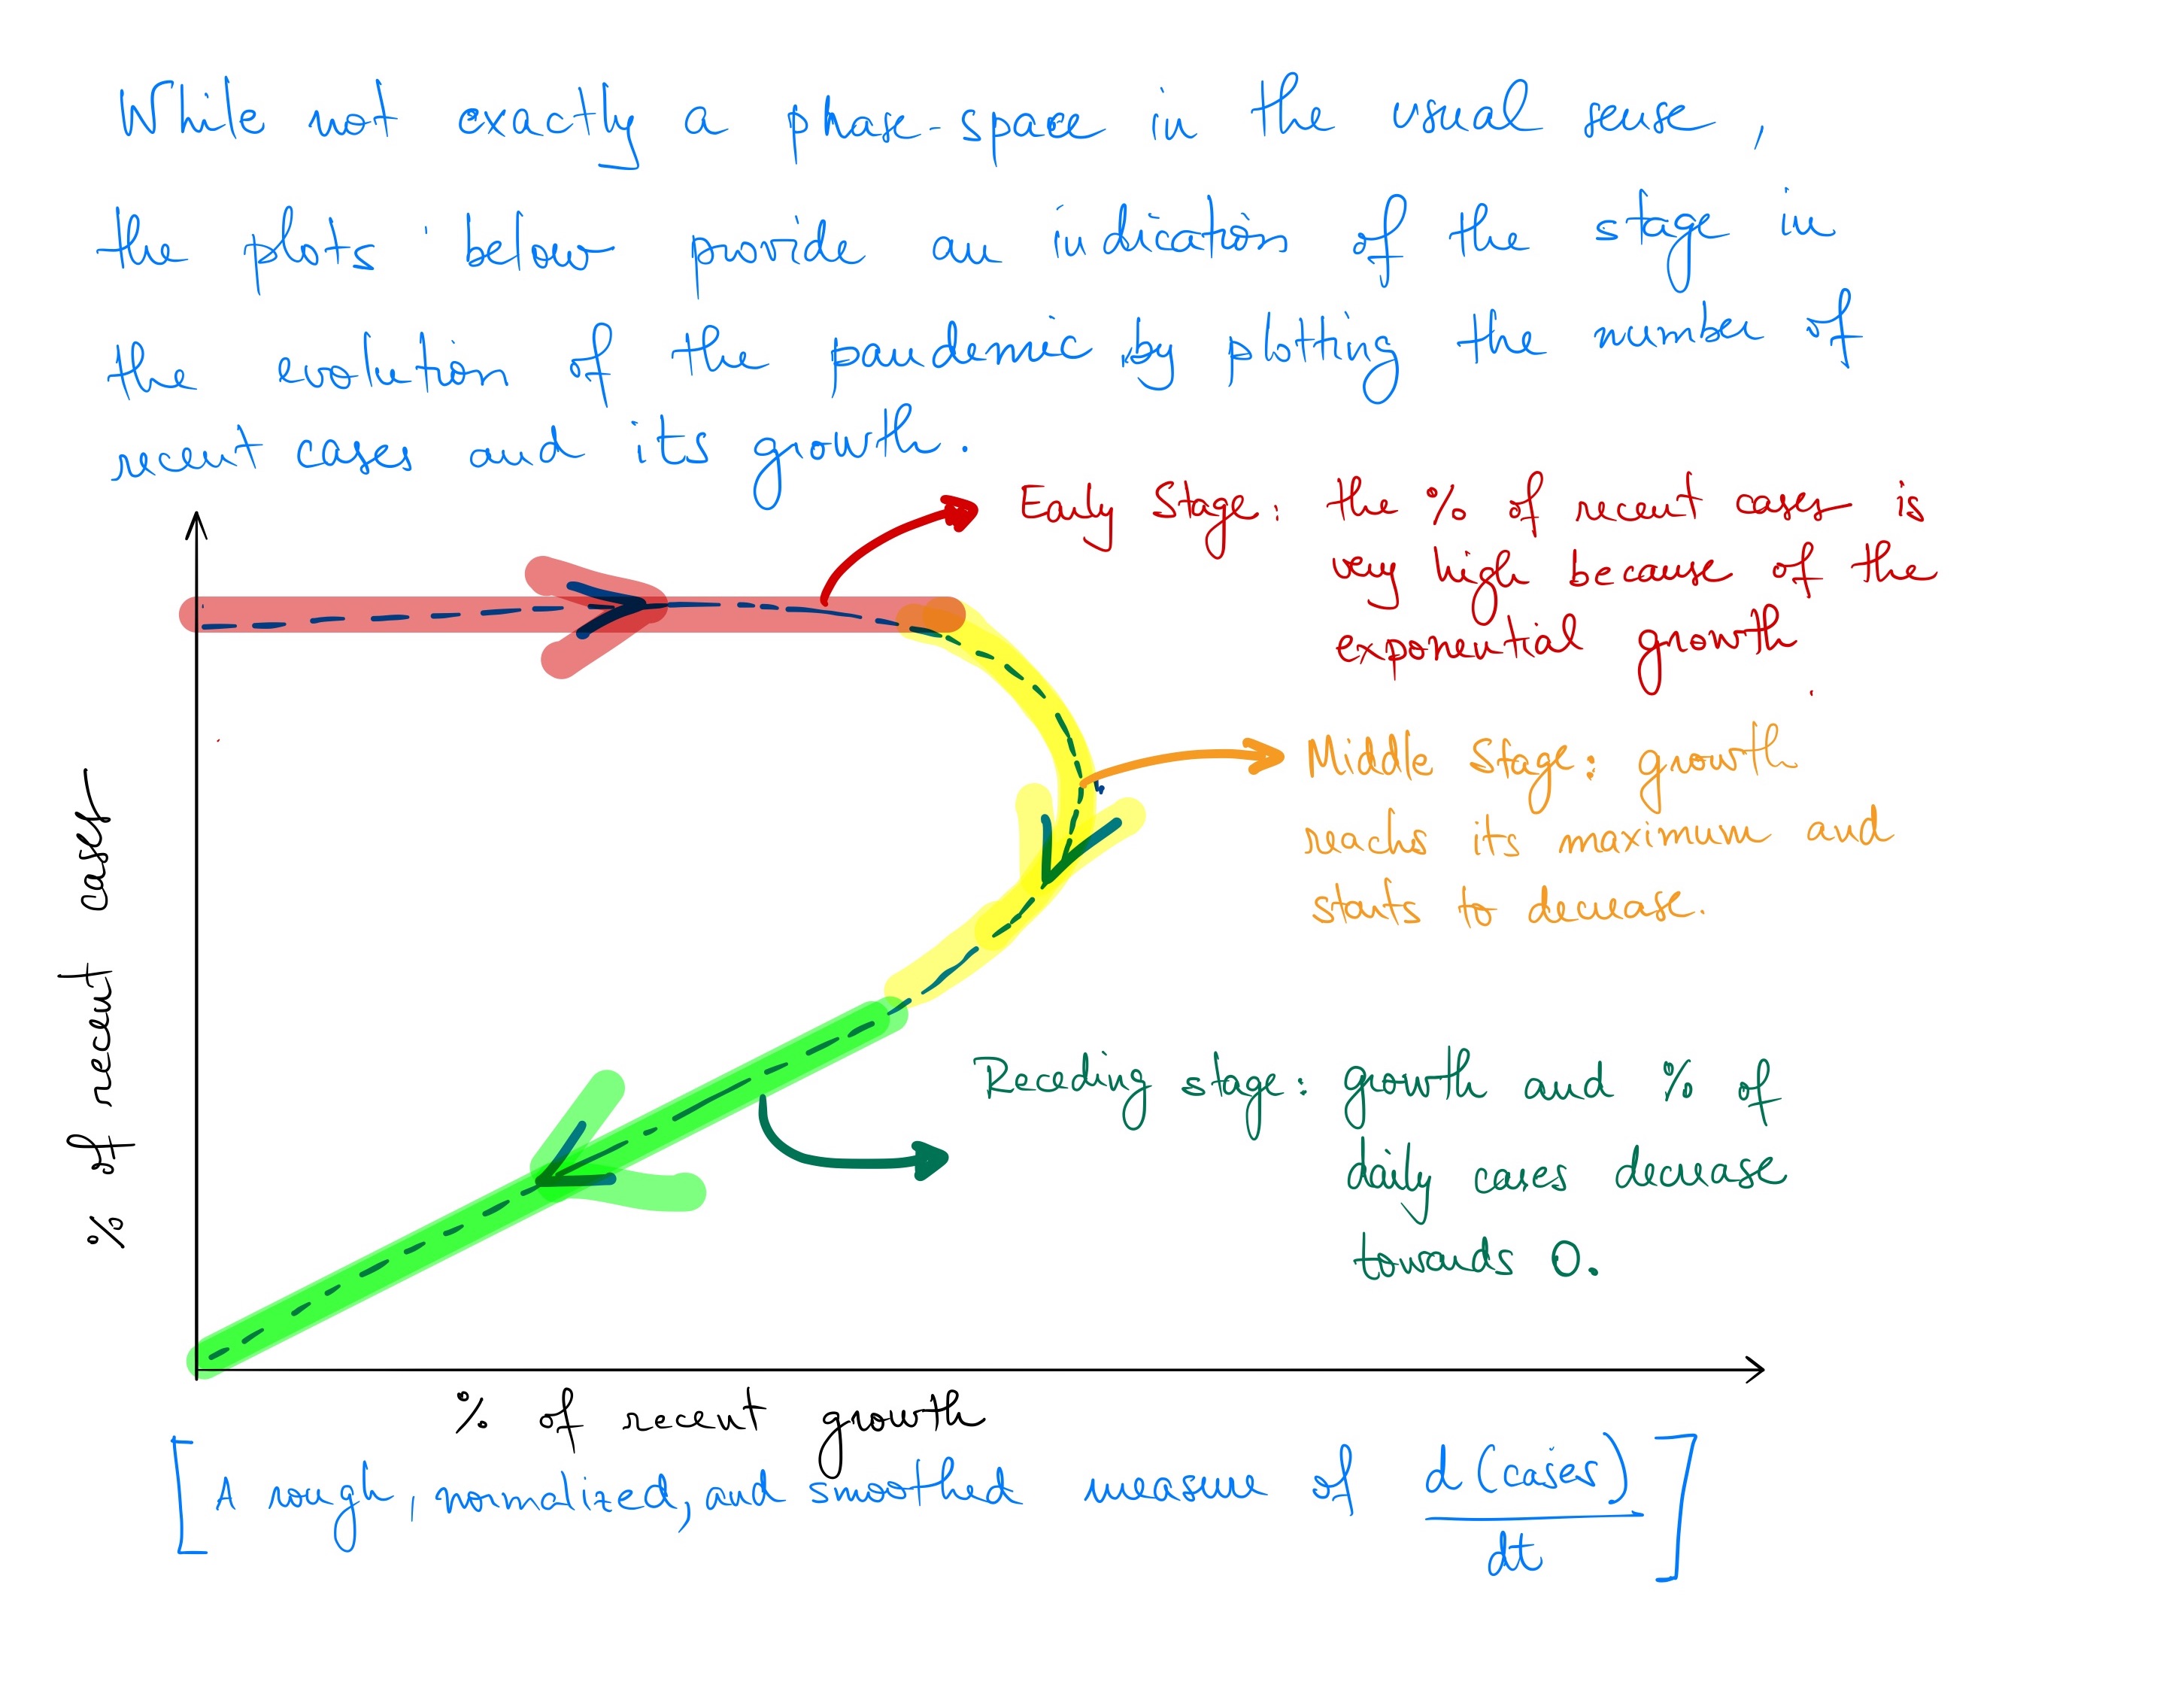 While not exactly a phase-space in the usual sense,
the plots below provide an indication of the stage in
the evolution of the pandemic by plotting the number of
recent cases and its growth.
Early Stage: the % of recent cases is
very high because of the
exponential growth.
Middle Stage: growth
reaches its maximum and
starts to decrease.
% of recent cases
Receding stage: growth and % of
daily cases decrease
towards 0.
% of recent growth
[A rough, normalized, and smoothed measure of d(cases)/dt]